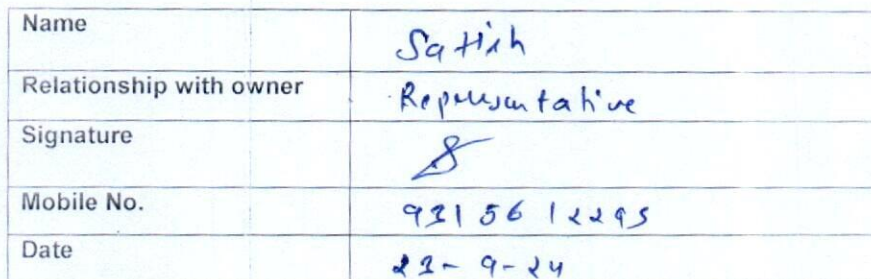 Name Satish
Relationship with owner Representative
Signature
Mobile No. 9315612295
Date 23-9-24